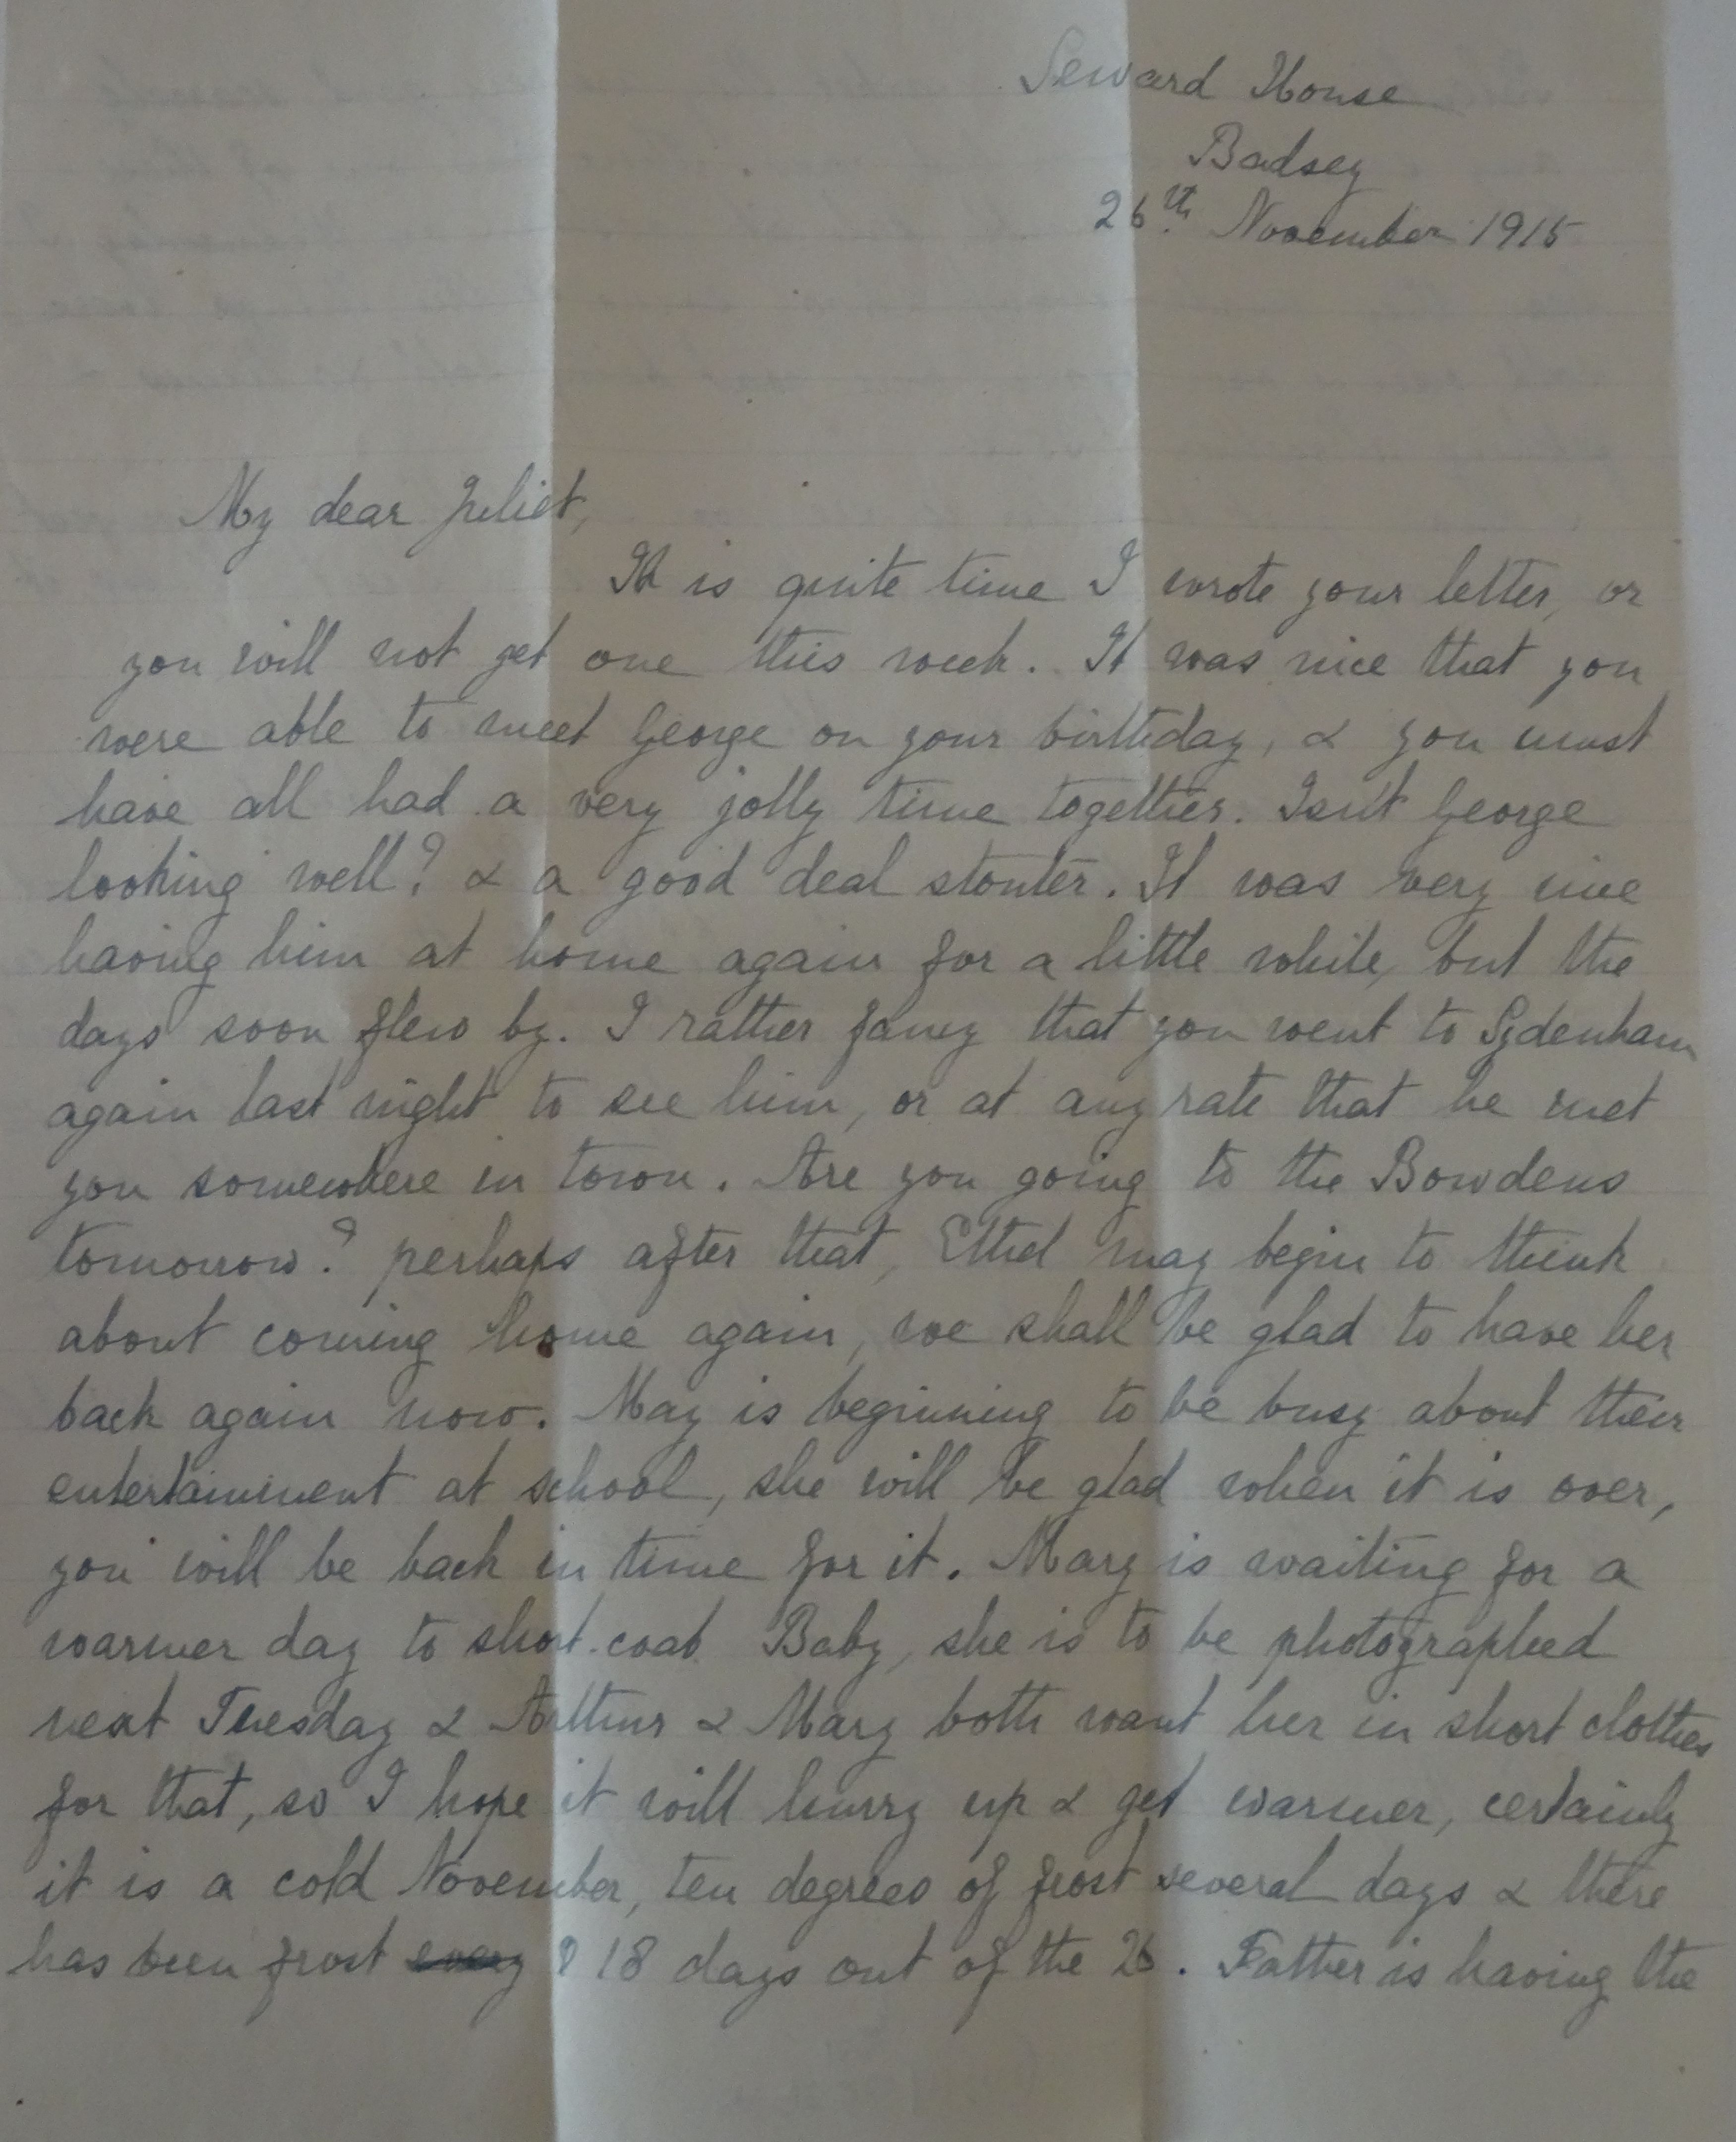 Seward House
Badsey
26th November 1915
My dear Juliet,
It is quite time I wrote your letter, or
you will not get one this week. It was nice that you
were able to meet George on your birthday, & you must
have all had a very jolly time together. Isn't George
looking well? & a good deal stouter. It was very nice
having him at home again for a little while, but the
days soon flew by. I rather fancy that you went to Sydenham
again last night to see him, or at any rate that he met
you somewhere in town. Are you going to the Bowdens
tomorrow? perhaps after that, Ethel may begin to think
about coming home again, we shall be glad to have her
back again now. May is beginning to be busy about their
entertainment at school, she will be glad when it is over,
you will be back in time for it. Mary is waiting for a
warmer day to short-coat Baby, she is to be photographed
next Tuesday & Arthur & Mary both want her in short clothes
for that, so I hope it will hurry up & get warmer, certainly
it is a cold November, ten degrees of frost several days & there
has been frost every 18 days out of the 26. Father is having the